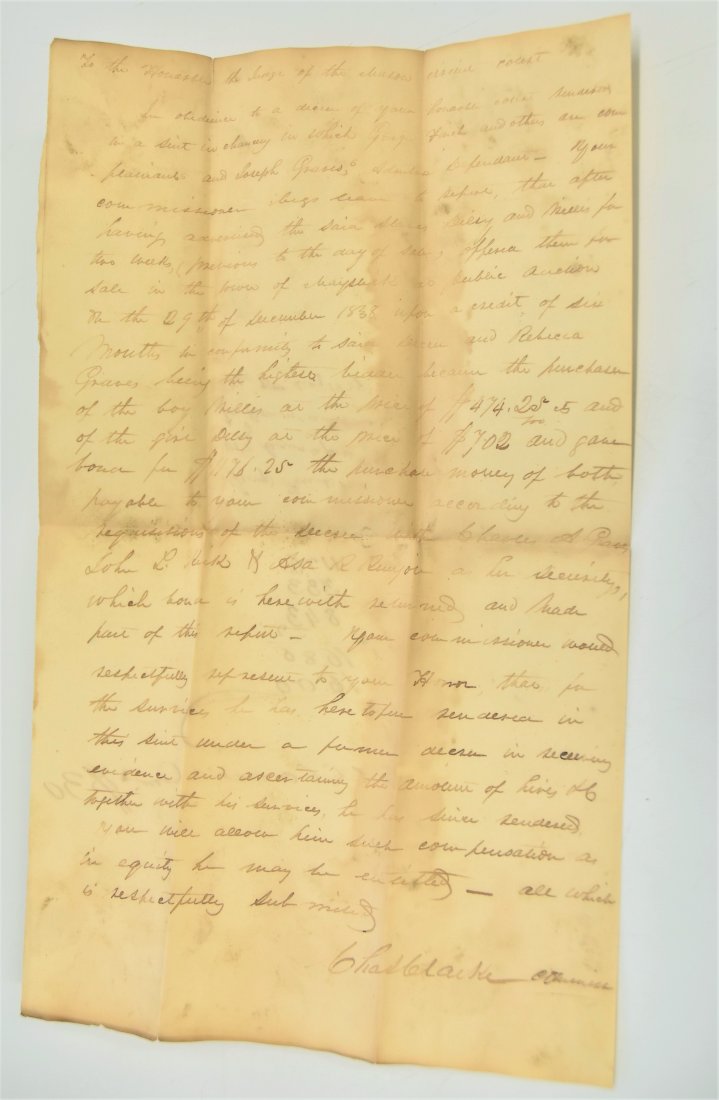 To the Honorable the Judge of the Mason circuit court
In obedience to a decree of your honorable court rendered
in a suit in chancery in which George and others are com
plainants and Joseph Graves, Defendant - Your
commissioner begs leave to report, that after
having advertised the said slaves Delsy and Willis for
two weeks, previous to the day of sale, offered them for
sale in the town of Mayslick at public auction
On the 29th of December 1838 upon a credit of six
Months in conformity to said decree and Rebecca
Graves being the highest bidder became the purchaser
of the boy Willis at the price of $474.25 and
of the girl Delsy at the price of $702 and gave
bond for $1176.25 the purchase money of both
payable to your commissioner according to the
requisitions of the decree with Charles A
John L. Kirk & Asa R Runyon as her securities,
which bond is herewith returned and made
part of this report - Your commissioner would
respectfully represent to your Honor, that for
the services he has heretofore rendered in
this suit under a former decree in receiving
evidence and ascertaining the amount of hires &c
together with his services, he has since rendered
You will allow him such compensation as
in equity he may be entitled - all which
is respectfully submitted
Chas Clarke commiss